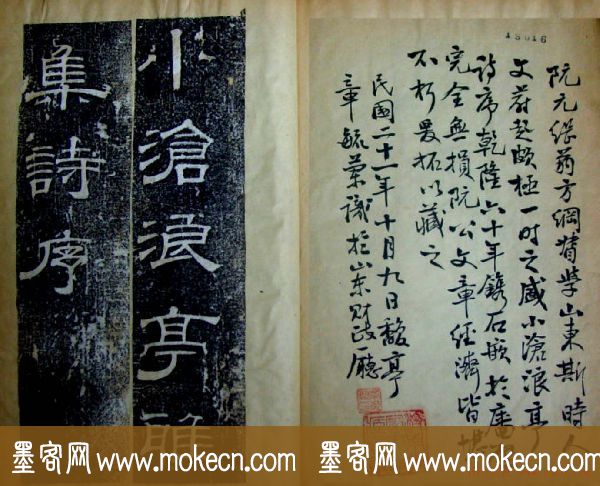 阮元繼翁方綱督學山東斯時人
文蔚起頗極一时之盛小滄浪亭
詩序乾隆六十年鐫石嵌於
完全無損阮公文章經濟皆
不朽爰拓以藏之
民國二十一年十月九日馥亭
章毓蘭識於山东财政廳
小滄浪亭雅
集詩序
墨客网 www.mokecn.com 墨客网 www.mokecn.com